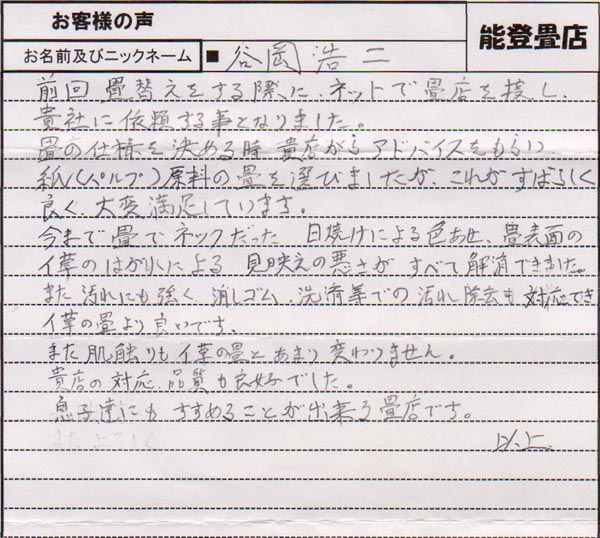 お客様の声
能登畳店
お名前及びニックネーム ■ 谷岡 浩二
前回 畳替えをする際に、ネットで畳店を探し、
貴社に依頼する事となりました。
畳の仕様を決める時 貴店からアドバイスをもらい
紙(パルプ)原料の畳を選びましたが、これがすばらしく
良く、大変満足しています。
今まで畳でネックだった 日焼けによる色あせ、畳表面の
イ草のはがれによる 見映えの悪さが すべて解消できました。
また汚れにも強く、消しゴム、洗済等での汚れ除去も対応でき
イ草の畳より良いです、
また肌触りもイ草の畳とあまり変わりません。
貴店の対応、品質も良好でした。
息子達にもすすめることが出来る畳店です。
またよろしく
以上